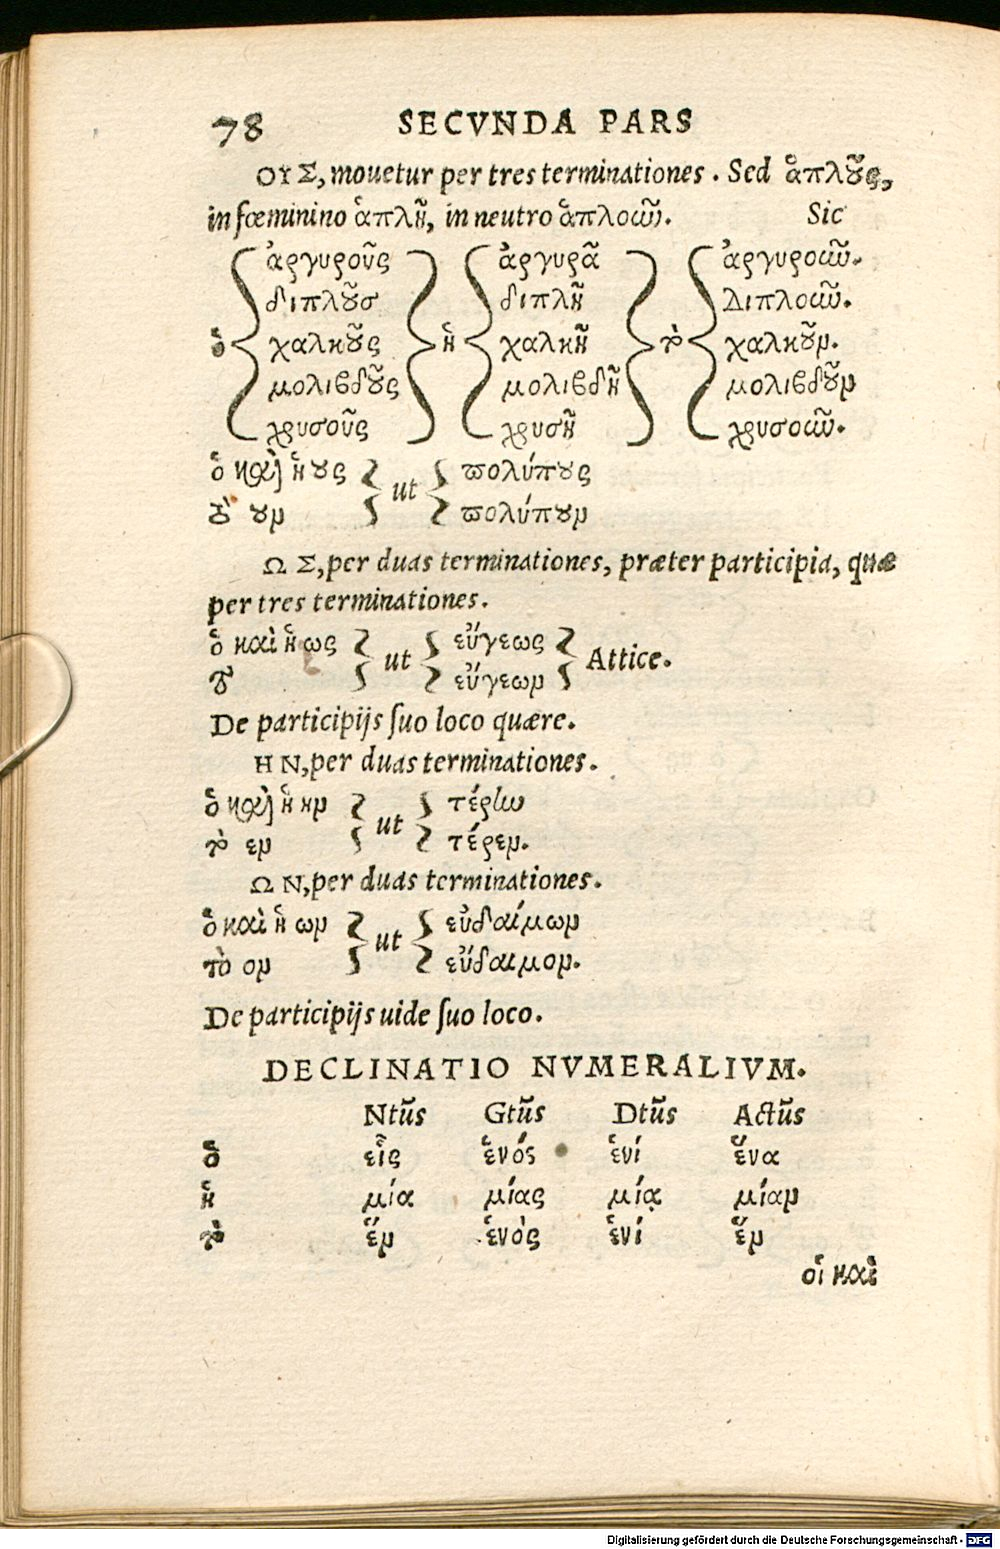 78 SECVNDA PARS
ΟΥΣ, mouetur per tres terminationes. Sed ἁπλοῦς,
in fœminino ἁπλῆ, in neutro ἁπλοῶν. Sic
ὁ { ἀργυροῦς } ἡ { ἀργυρᾶ } τὸ { ἀργυροῶν.
διπλοῦσ διπλῆ Διπλοῶν.
χαλκοῦς χαλκῆ χαλκοῦν.
μολιβδοῦς μολιβδῆ μολιβδοῦν
χρυσοῦς χρυσῆ χρυσοῶν.
ὁ καὶ ἡ ους } ut { πολύπους
τὸ ουν πολύπουν
Ω Σ, per duas terminationes, præter participia, quæ
per tres terminationes.
ὁ καὶ ἡ ως } ut { εὔγεως } Attice.
τὸ εὔγεων
De participijs ſuo loco quære.
Η Ν, per duas terminationes.
ὁ καὶ ἡ ην } ut { τέρην
τὸ εν τέρεν.
Ω Ν, per duas terminationes.
ὁ καὶ ἡ ων } ut { εὐδαίμων
τὸ ον εὔδαιμον.
De participijs uide ſuo loco.
DECLINATIO NVMERALIVM.
Ntūs Gtūs Dtūs Actūs
ὁ εἷς ἑνός ἑνί ἕνα
ἡ μία μίας μίᾳ μίαν
τὸ ἕν ἑνὸς ἑνί ἕν
οἱ καὶ
Digitalisierung gefördert durch die Deutsche Forschungsgemeinschaft - DFG